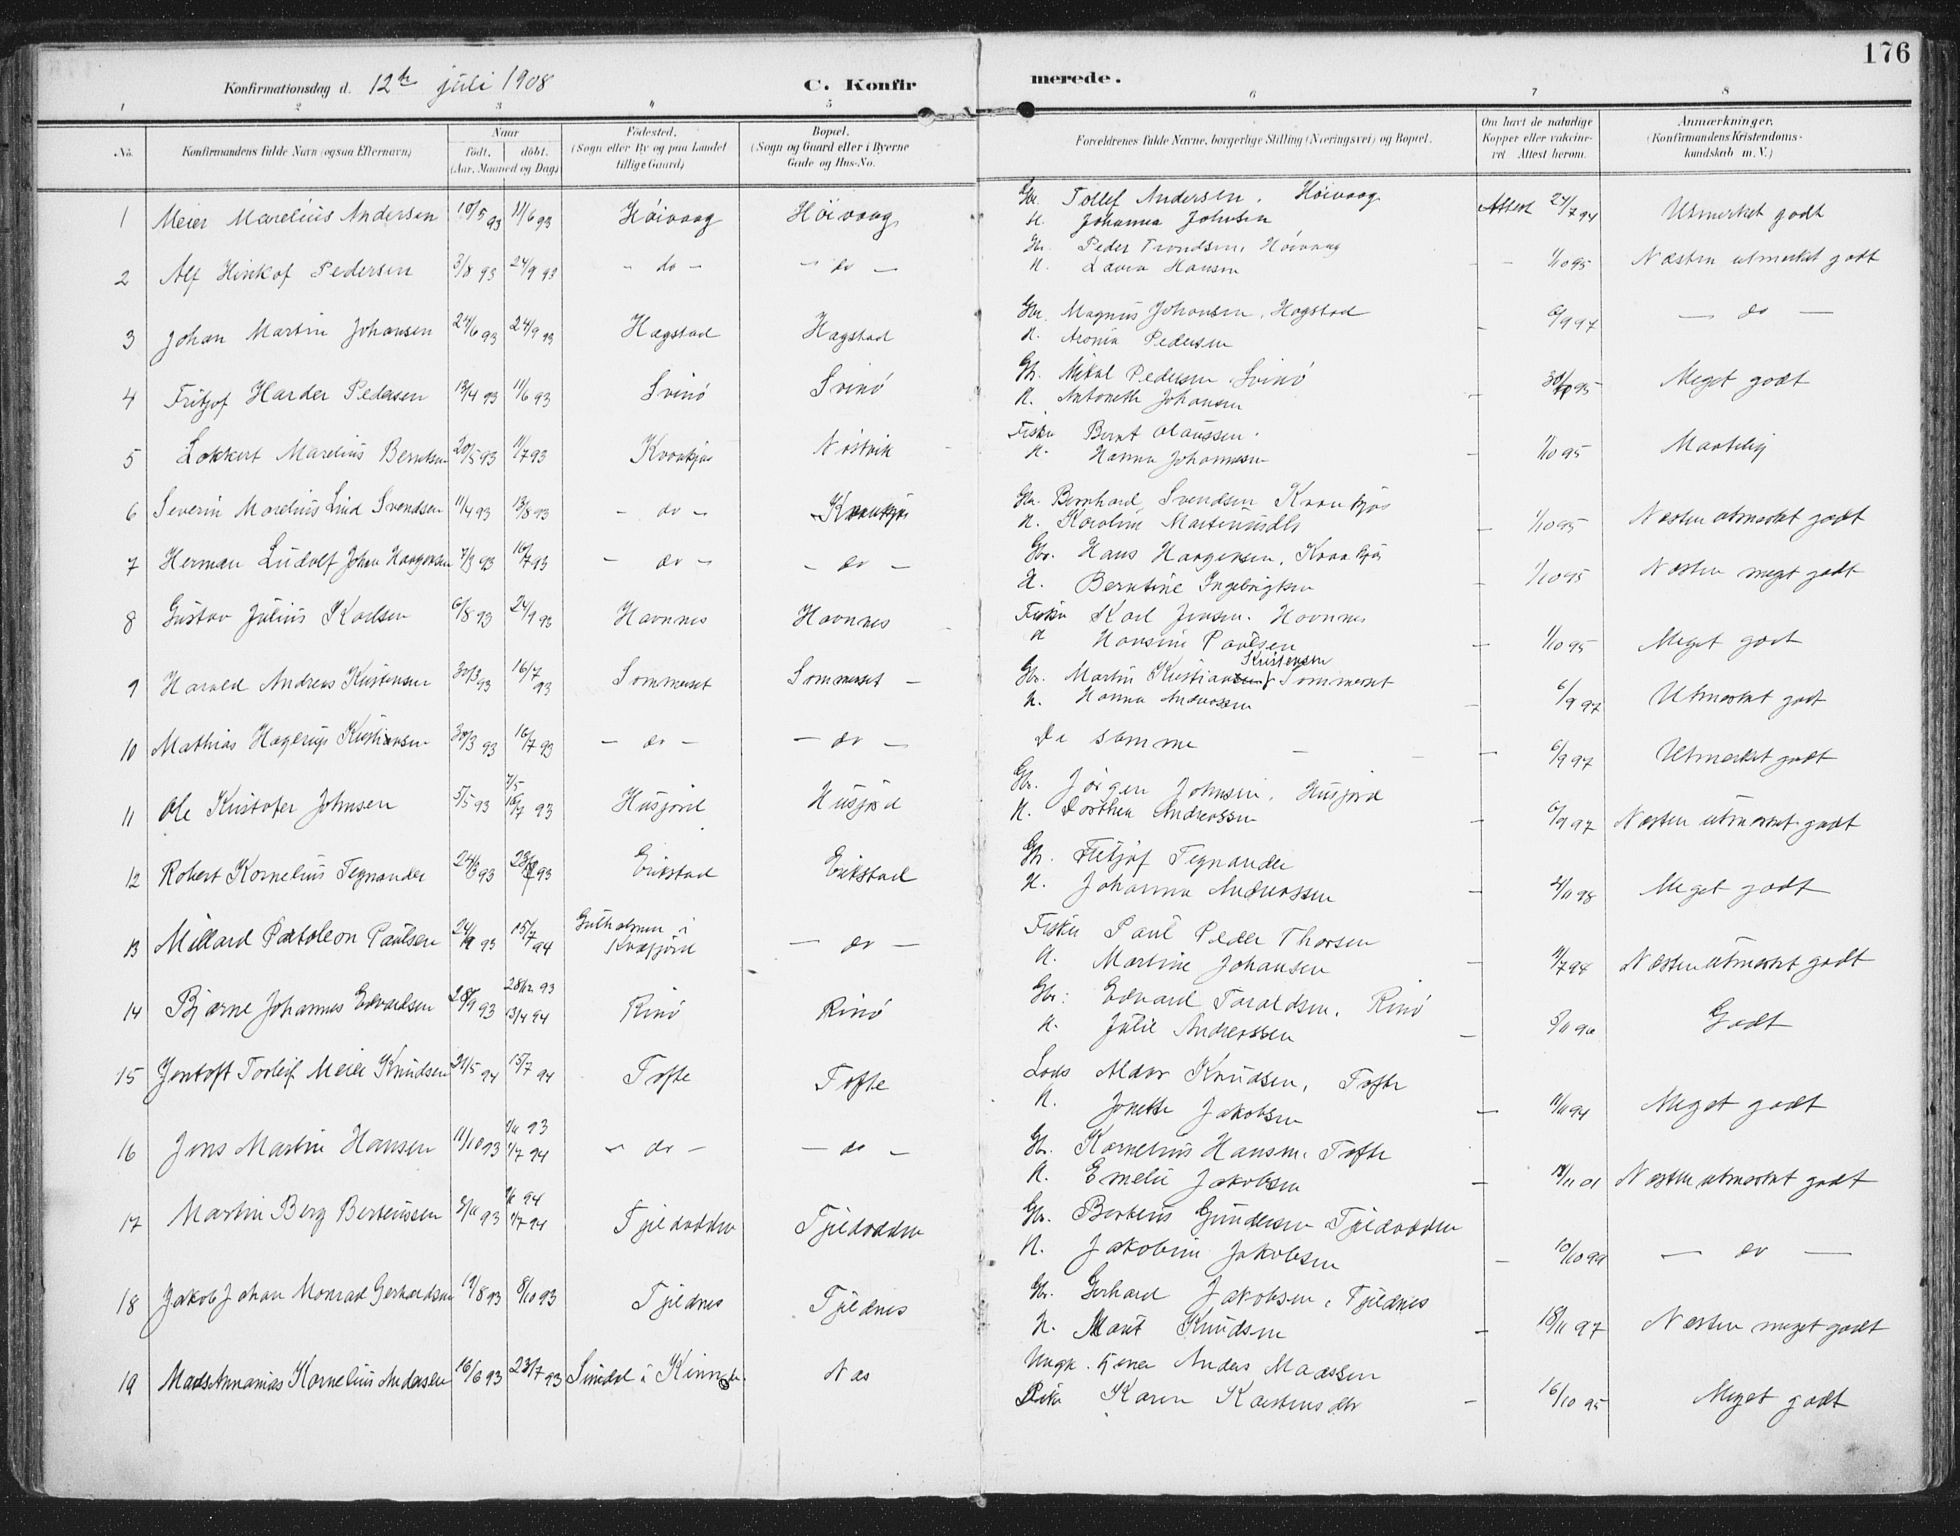 176
Konfirmationsdag d. 12te juli 1908
C. Konfirmerede.
1 2 3 4 5 6 7 8
No. Konfirmandens fulde Navn (ogsaa Efternavn) Naar født, døbt. (Aar, Maaned og Dag) Fødested. (Sogn eller By og paa Landet tillige Gaard) Bopæl. (Sogn og Gaard eller i Byerne Gade og Hus-No. Forældrenes fulde Navne, borgerlige Stilling (Næringsvei) og Bopæl. Om havt de naturlige Kopper eller vakcineret. Attest herom. Anmærkninger. (Konfirmandens Kristendomskundskab m. V.)
1 Meier Marelius Andersen 10/5 93 11/6 93 Høivaag Høivaag Gbr. Tollef Andersen. Høivaag Attest 24/7 94 Utmerket godt
H. Johanna Johnsen
2 Alf Hinkof Pedersen 3/8 93 24/9 93 - do - - do - Gbr. Peder Trondsen, Høivaag - 1/10 95 Næsten utmerket godt
H. Lavra Hansen
3 Johan Martin Johansen 24/6 93 24/9 93 Hagstad Hagstad Gbr. Magnus Johansen, Hagstad - 6/9 97 - do -
H. Aronia Pedersen
4 Fritjof Harder Pedersen 13/4 93 11/6 93 Svinø Svinø Gbr. Mikal Pedersen Svinø - 95 Meget godt
H. Antoneth Johansen
5 Lokkert Marelius Berntsen 20/5 93 11/7 93 Kvaakjøs Nøstvik Fisker Bernt Olaussen. - 1/10 95 Maatelig
H. Hanna Johannesen
6 Severin Morelius Lind Svendsen 11/4 93 13/8 93 - do - Gbr. Bernhard Svendsen - 1/10 95 Næsten utmerket godt
H. Karoline Martinusdtr
7 Herman Ludolf Johan Haagensen 7/3 93 16/7 93 - do - - do - Gbr. Hans Haagensen, 1/10 95 Næsten meget godt
H. Berntine Ingebrigtsen
8 Gustav Julius Karlsen 6/8 93 24/9 93 Havnnes Havnnes Fisker Karl Jensen. Havnnes - 1/10 95 Meget godt
H Hansine Paulsen
9 Harald Andreas Kristensen 30/3 93 16/7 93 Sommerset Sommerset - Gbr. Martin Kristiansen Kristensen Sommerset - 6/9 97 Utmerket godt
H. Hanna Andersen
10 Mathias Hagerup Kristiansen 30/3 93 16/7 93 - do - - do - De samme - - 6/9 97 Utmerket godt
11 Ole Kristofer Johnsen 5/5 93 7/5 16/7 93 Husjord Husjord Gbr. Jørgen Johnsen, Husjord - 6/9 97 Næsten utmerket godt
H. Dorthea Anderssen
12 Robert Kornelius Tegnander 24/3 93 Erikstad Erikstad Gbr. Fritjof Tegnander - 4/11 98 Meget godt
H. Johanna Anderssen
13 Millard Partoleon Paulsen 93 15/7 94 Gulholmen i Kvæfjord - do - Fisker Paul Peder Thorsen - 11/7 94 Næsten utmerket godt
H. Martine Johansen
14 Bjarne Johannes Edvardsen 28/9 93 28/12 93 13/4 94 Rinø Rinø Gbr: Edvard Taraldsen, Rinø - 5/11 96 Godt
H. Julie Anderssen
15 Jentoft Torleif Meier Knudsen 21/5 94 15/7 94 Tofte Tofte Lods Aldor Knudsen, Tofte - 11/11 94 Meget godt
H. Jonette Jakobsen
16 Jens Martin Hansen 11/10 93 1/11 93 1/7 94 - do - - do - Gbr. Kornelius Hansen, Tofte - 18/11 01 Næsten utmerket godt
H. Emelie Jakobsen
17 Martin Berg Berteussen 2/11 93 94 1/7 94 Tjeldodden Tjeldodden Gbr. Berteus Gundersen Tjeldodden - 10/10 99 - do -
H. Jakobine Jakobsen
18 Jakob Johan Monrad Gerhardsen 19/8 93 8/10 93 Tjeldnes Tjeldnes Gbr. Gerhard Jakobsen, Tjeldnes - 18/11 97 Næsten meget godt
H. Marit Knudsen
19 Mads Annanias Kornelius Andersen 16/6 93 23/7 93 Næs Ungk. Anders Maassen 16/10 95 Meget godt
Pike Karen Karstensdtr -